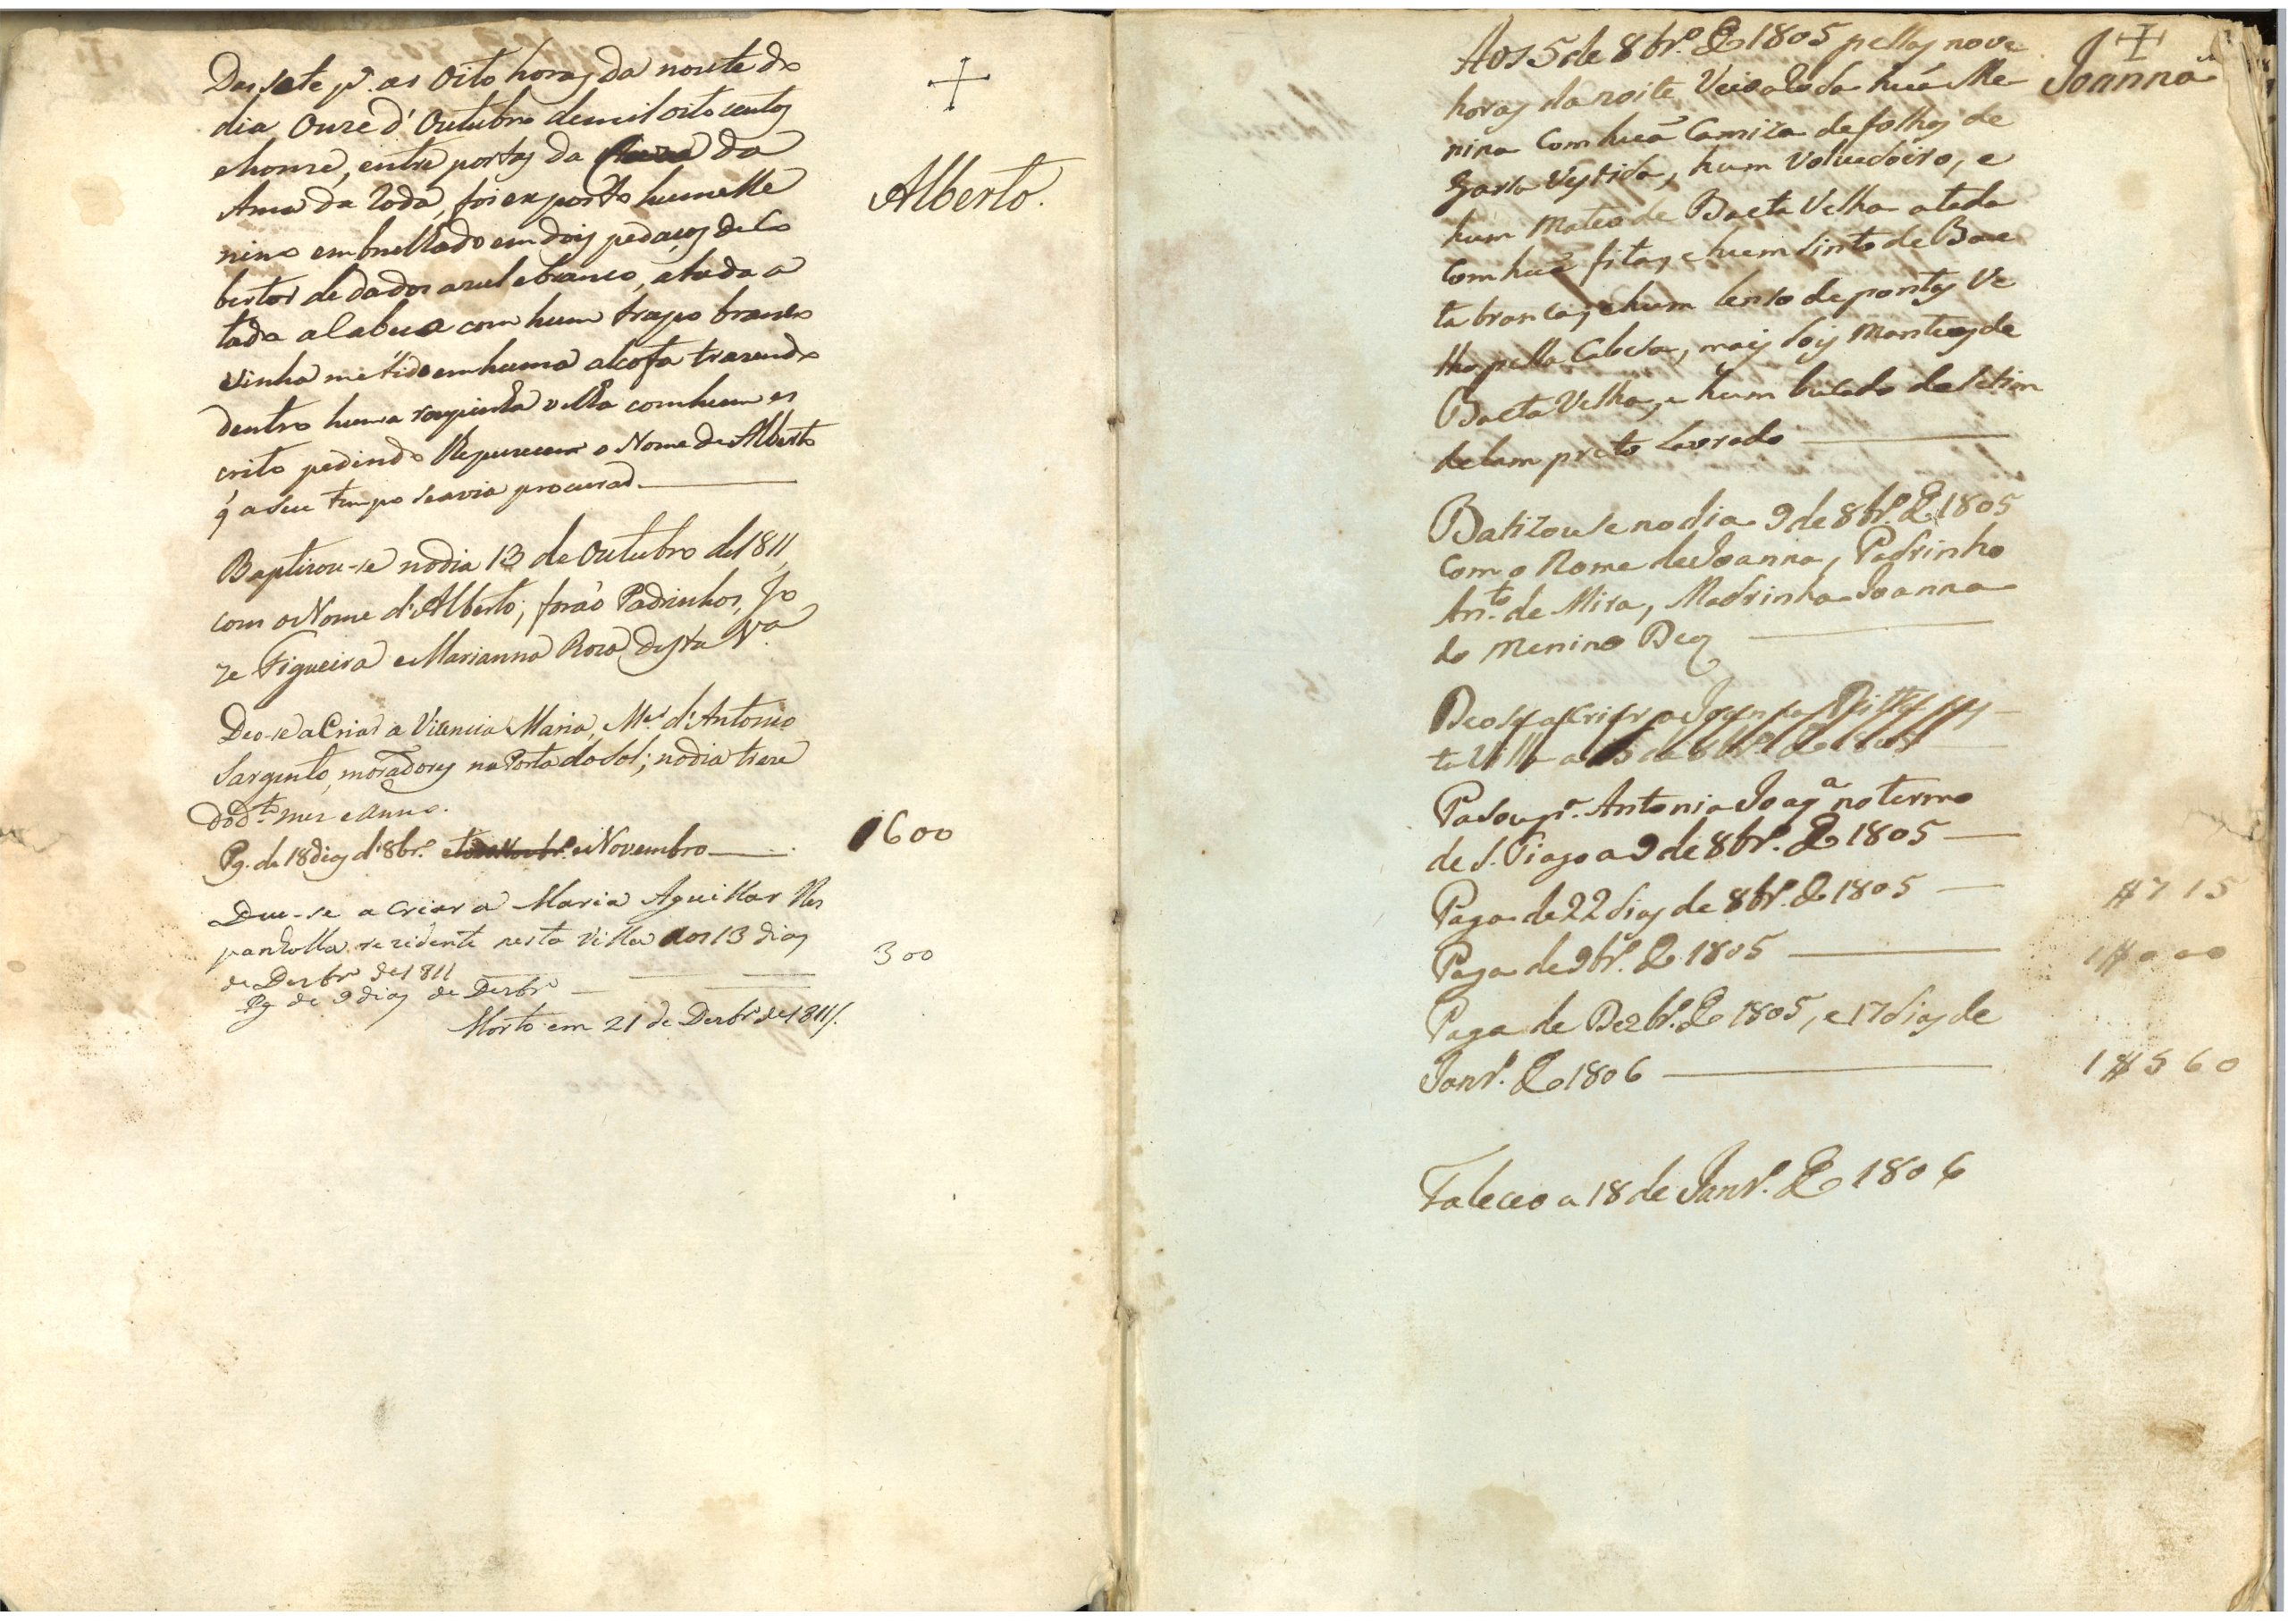 +
Alberto.
Das sete pª. as Oito horas da noute do
dia Onze d'Outubro de mil oito centos
e honze, entre portas da da
Ama da Roda, foi exposto hum Me
nino embrulhado em dois pedaços de Co
bertor de dados azul e branco, atada a
tado a cabeça com hum trapo branco
e tinha metido em huma alcofa trazendo
dentro huma roupinha velha com hum es
crito pedindo o Nome de Alberto
q̃ a seu tempo seavia procurad.
Baptizou-se no dia 13 de Outubro de 1811,
com o Nome d'Alberto; forão Padrinhos, Jo
ze Figueira e Marianna Roza desta Vª.
Deo-se a Criar a Vicencia Maria, Mer. d'Antonio
Sargento, moradores na Porta do Sol; no dia treze
do dto. mez e anno.
Pg. de 18 dias d'8brº. e Novembro 1600
Deu-se a criar a Maria Aguillar Hes
panholla rezidente nesta Villa aos 13 dias
de Dezbrº de 1811
Pg de 9 dias de Dezbrº 300
Morto em 21 de Dezbrº de 1811.
+
Joanna
Aos 5 de 8brº. de 1805 pellas nove
horas da noite Veio a Roda huã Me
nina Com huã Camiza de folhos de
Garsa Vestida, hum Volvedoiro, e
hum Mateo de Baeta Velha atada
Com huã fita, e hum Sinto de Bae
ta branca, e hum lenso de pontas Ve
lho pella Cabesa, mais dois Manteos de
Baeta Velha, e hum bucado de Setim
de lam preto Lavrado
Batizouse no dia 9 de 8brº. de 1805
Com o Nome de Joanna, Padrinho
Antº. de Mira, Madrinha Joanna
do Menino Deos
Deose a Criar a
ta Villa a 5 de 8brº. de 1805
Pasou pª. Antonia Joaqª no termo
de S. Tiago a 9 de 8brº. de 1805
Paga de 22 dias de 8brº. de 1805 #715
Paga de 9brº. de 1805 1#000
Paga de Dezbrº. de 1805, e 17 dias de
Janrº. de 1806 1#560
Faleceo a 18 de Janrº. de 1806